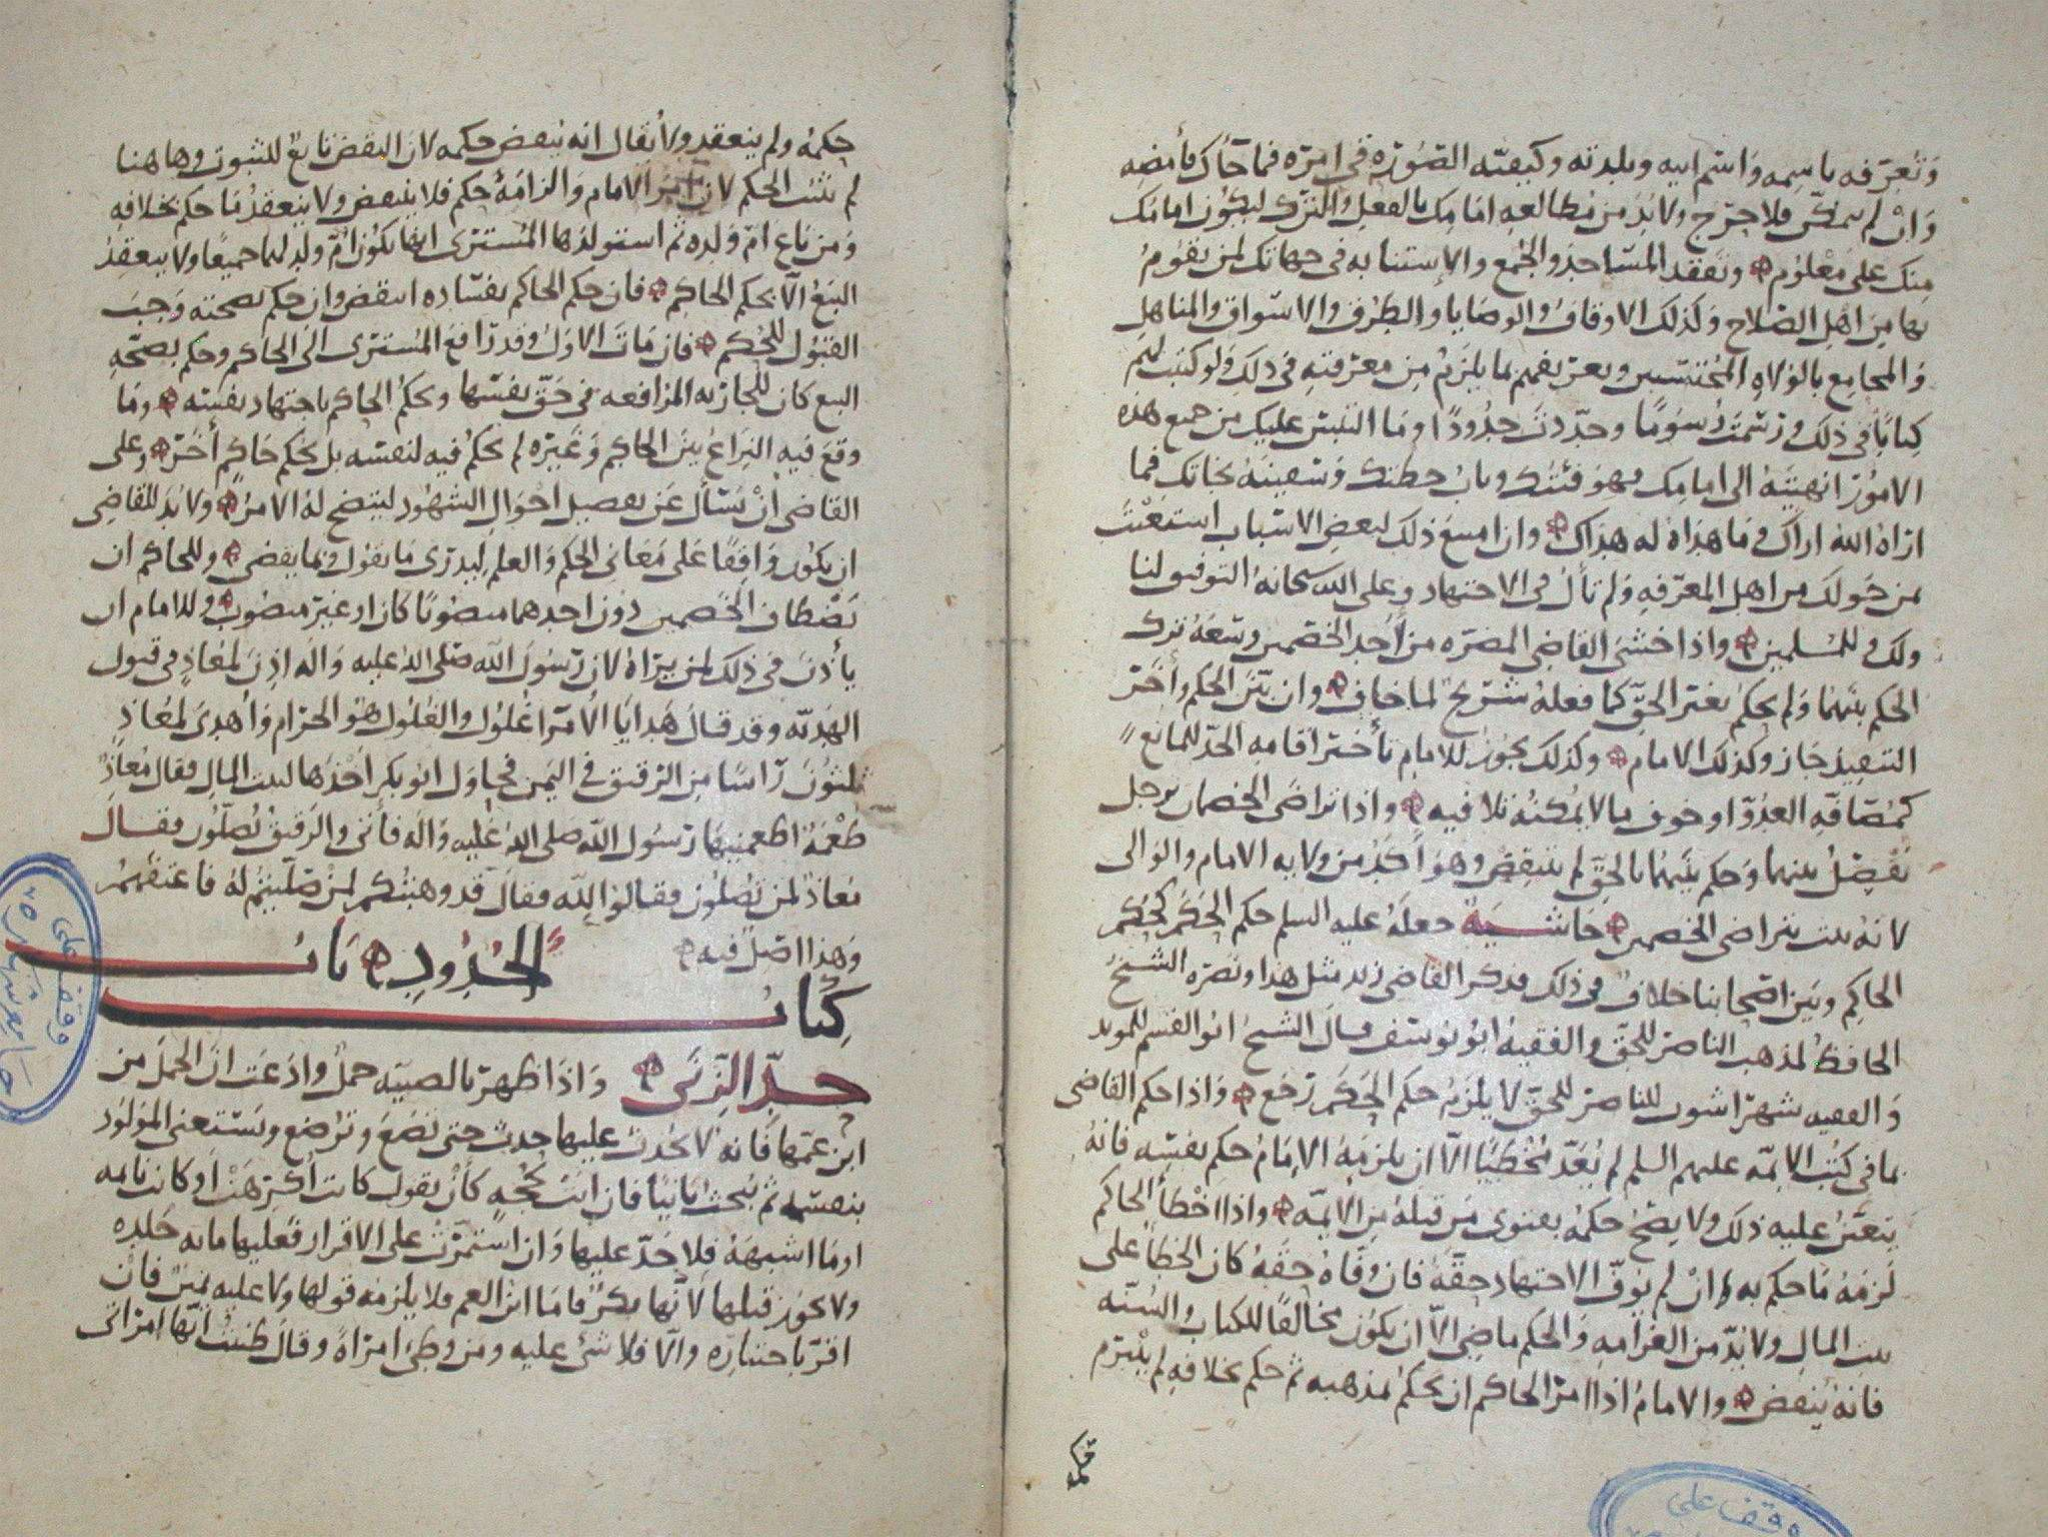 وتعرفه باسمه واسم ابيه وبلدته وكيفية الصورة في امره فما جاك فأمضه
وان لم يمكن فلا حرج ولا بد من مطالعه امامك بالفعل والترك ليكون امامك
منك على معلوم وتفقد المساجد والجمع والاستنابه في جهاتك لمن يقوم
بها من اهل الصلاح وكذلك الاوقاف والوصايا والطرق والاسواق والمناهل
والمجامع بالولاه المحتسبين وتعريفهم بما يلزمهم من معرفته في ذلك ولو كتبت لهم
كتابا في ذلك ورسمت رسوما وحددت حدودا وما التبس عليك من جميع هذه
الامور انهيته الى امامك فهو فئتك وباب حطتك وسفينة نجاتك فما
اراه الله اراك وما هداه له هداك وان امتنع ذلك لبعض الاسباب استعنت
بمن حولك من اهل المعرفه ولم تأل في الاجتهاد وعلى الله سبحانه التوفيق لنا
ولك وللمسلمين واذا خشي القاضي المضره من احد الخصمين وسعه ترك
الحكم بينهما ولم يحكم بغير الحق كما فعله شريح لما خاف وان بين الحكم وأخر
التنفيذ جاز وكذلك الامام وكذلك يجوز للامام تأخير اقامه الحد للمانع
كمصافه العدو او خوف ما لا يمكنه تلافيه واذا تراضى الخصمان برجل
يفصل بينهما وحكم بينهما بالحق لم ينتقض وهو أكد من ولايه الامام والوالي
لانه يثبت بتراضي الخصمين حاشية جعله عليه السلم حكم الحكم كحكم
الحاكم وبين اصحابنا خلاف في ذلك فذكر القاضي زيد مثل هذا ونصره الشيخ
الحافظ لمذهب الناصر للحق والفقيه ابو يوسف قال الشيخ ابو القسم للمويد
والفقيه شهراشوب للناصر للحق لا يلزم حكم الحكم رجع واذا حكم القاضي
بما في كتب الائمه عليهم السلم لم يعد مخطيا الا ان يلزمه الامام حكم نفسه فانه
يتعين عليه ذلك ولا يصح حكمه بفتوى من قبله من الائمه واذا اخطأ الحاكم
لزمه ما حكم به وان لم يوف الاجتهاد حقه فان وفاه حقه كان الخطأ على
بيت المال ولا بد من الغرامه والحكم ماضي الا ان يكون مخالفا للكتاب والسنه
فانه ينقض والامام اذا امر الحاكم ان يحكم بمذهبه ثم حكم بخلافه لم يلتزم
حكمه
وقف على
حكمه ولم ينعقد ولا يقال انه ينقض حكمه لان النقض تابع للثبوت وهاهنا
لم يثبت الحكم لان أمر الامام والزامه حكم فلا ينتقض ولا ينعقد ما حكم بخلافه
ومن باع ام ولده ثم استولدها المشتري ايضا يكون ام ولد لهما جميعا ولا ينعقد
البيع الا بحكم الحاكم فان حكم الحاكم بفساده انتقض وان حكم بصحته وجب
القبول للحكم فان مات الاول وقد رافع المشتري الى الحاكم وحكم بصحه
البيع كان للجاريه المرافعه في حق نفسها ويحكم الحاكم باجتهاد نفسه وما
وقع فيه النزاع بين الحاكم وغيره لم يحكم فيه لنفسه بل يحكم حاكم أخر وعلى
القاضي ان يسأل عن تفصيل احوال الشهود ليتضح له الامر ولا بد للقاضي
ان يكون واقفا على معاني الحكم والعلم ليدرى ما يقول وبما يقضي وللحاكم ان
دون احدهما منصوبا كان او غير منصوب وللامام ان
يأذن في ذلك لمن يراه لان رسول الله صلى الله عليه واله اذن لمعاذ في قبول
الهديه وقد قال هدايا الأمرا غلول والغلول هو الحرام وأهدى لمعاذ
ثلثون راسا من الرقيق في اليمن فحاول ابو بكر اخذها لبيت المال فقال معاذ
طعمة اطعمنيها رسول الله صلى الله عليه واله فأتى والرقيق يصلون فقال
معاذ لمن تصلون فقالوا لله فقال قد وهبتكم لمن صليتم له فاعتقهم
وهذا اصل فيه
كتاب الحدود باب
حد الزنى واذا ظهر بالصبيه حمل وادعت ان الحمل من
ابن عمها فانه لا يحدث عليها حدث حتى تضع وترضع ويستغني المولود
بنفسه ثم يبحث ثانيا فان اتت بحجه كأن يقول كانت أكرهت او كانت نائمه
او ما اشبهه فلا حد عليها وان استمرت على الاقرار فعليها مائه جلده
ولا يجوز قتلها لانها بكر فاما ابن العم فلا يلزمه قولها ولا عليه يمين فان
اقر باختياره والا فلا شي عليه ومن وطي امراة وقال ظننت انها امراتي
وقف على